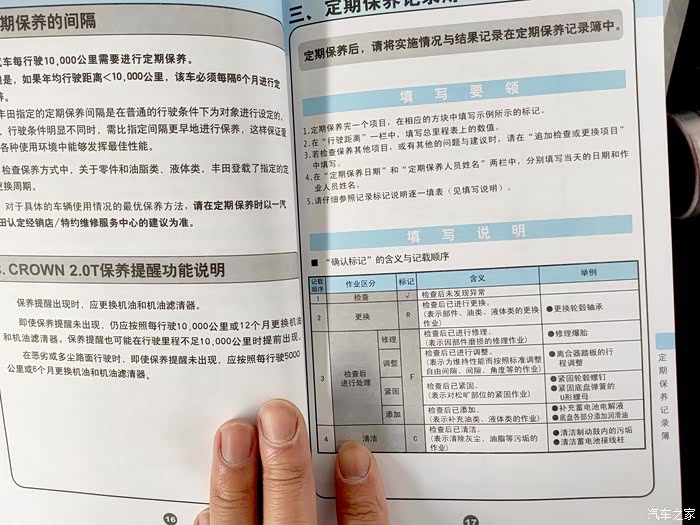 期保养的间隔
汽车每行驶10,000公里需要进行定期保养。
但是，如果年均行驶距离<10,000公里，该车必须每隔6个月进行定
养。
丰田指定的定期保养间隔是在普通的行驶条件下为对象进行设定的。
，行驶条件明显不同时，需比指定间隔更早地进行保养，这样保证爱
各种使用环境中能够发挥最佳性能。
检查保养方式中，关于零件和油脂类、液体类，丰田登载了指定的定
更换周期。
对于具体的车辆使用情况的最优保养方法，请在定期保养时以一汽
田认定经销店/特约维修服务中心的建议为准。
. CROWN 2.0T保养提醒功能说明
保养提醒出现时，应更换机油和机油滤清器。
即使保养提醒未出现，仍应按照每行驶10,000公里或12个月更换机油
和机油滤清器。保养提醒也可能在行驶里程不足10,000公里时提前出现。
在恶劣或多尘路面行驶时，即使保养提醒未出现，应按照每行驶5000
公里或6个月更换机油和机油滤清器。
16
三、定期保养记录簿
定期保养后，请将实施情况与结果记录在定期保养记录簿中。
填写要领
1.定期保养完一个项目，在相应的方块中填写示例所示的标记。
2.在“行驶距离”一栏中，填写总里程表上的数值。
3.若检查保养其他项目，或有其他的问题与建议时，请在“追加检查或更换项目”
中填写。
4.在“定期保养日期”和“定期保养人员姓名”两栏中，分别填写当天的日期和作
业人员姓名。
5.请仔细参照记录标记说明逐一填表（见填写说明）。
填写说明
■ “确认标记”的含义与记载顺序
记载顺序 作业区分 标记 含义 举例
1 检查 √ 检查后未发现异常
2 更换 R 检查后已进行更换。
（表示部件、油类、液体类的更换
作业） ●更换轮毂轴承
3 检查后
进行处理 F
修理 检查后已进行修理。
（表示因部件磨损的修理作业） ●修理爆胎
调整 检查后已进行调整。
（表示为维持性能而按照标准调整
自由间隙、间隙、角度等的作业） ●离合器踏板的行
程调整
紧固 检查后已紧固。
（表示对松旷部位的紧固作业） ●紧固轮毂螺钉
●紧固底盘弹簧的
U形螺母
添加 检查后已添加。
（表示补充油类、液体类的作业） ●补充蓄电池电解液
●底盘各部分添加润滑油
4 清洁 C 检查后已清洁。
（表示清除灰尘、油脂等污垢的
作业） ●清洁制动鼓内的污垢
●清洁蓄电池接线柱
定期保养记录簿
17
汽车之家